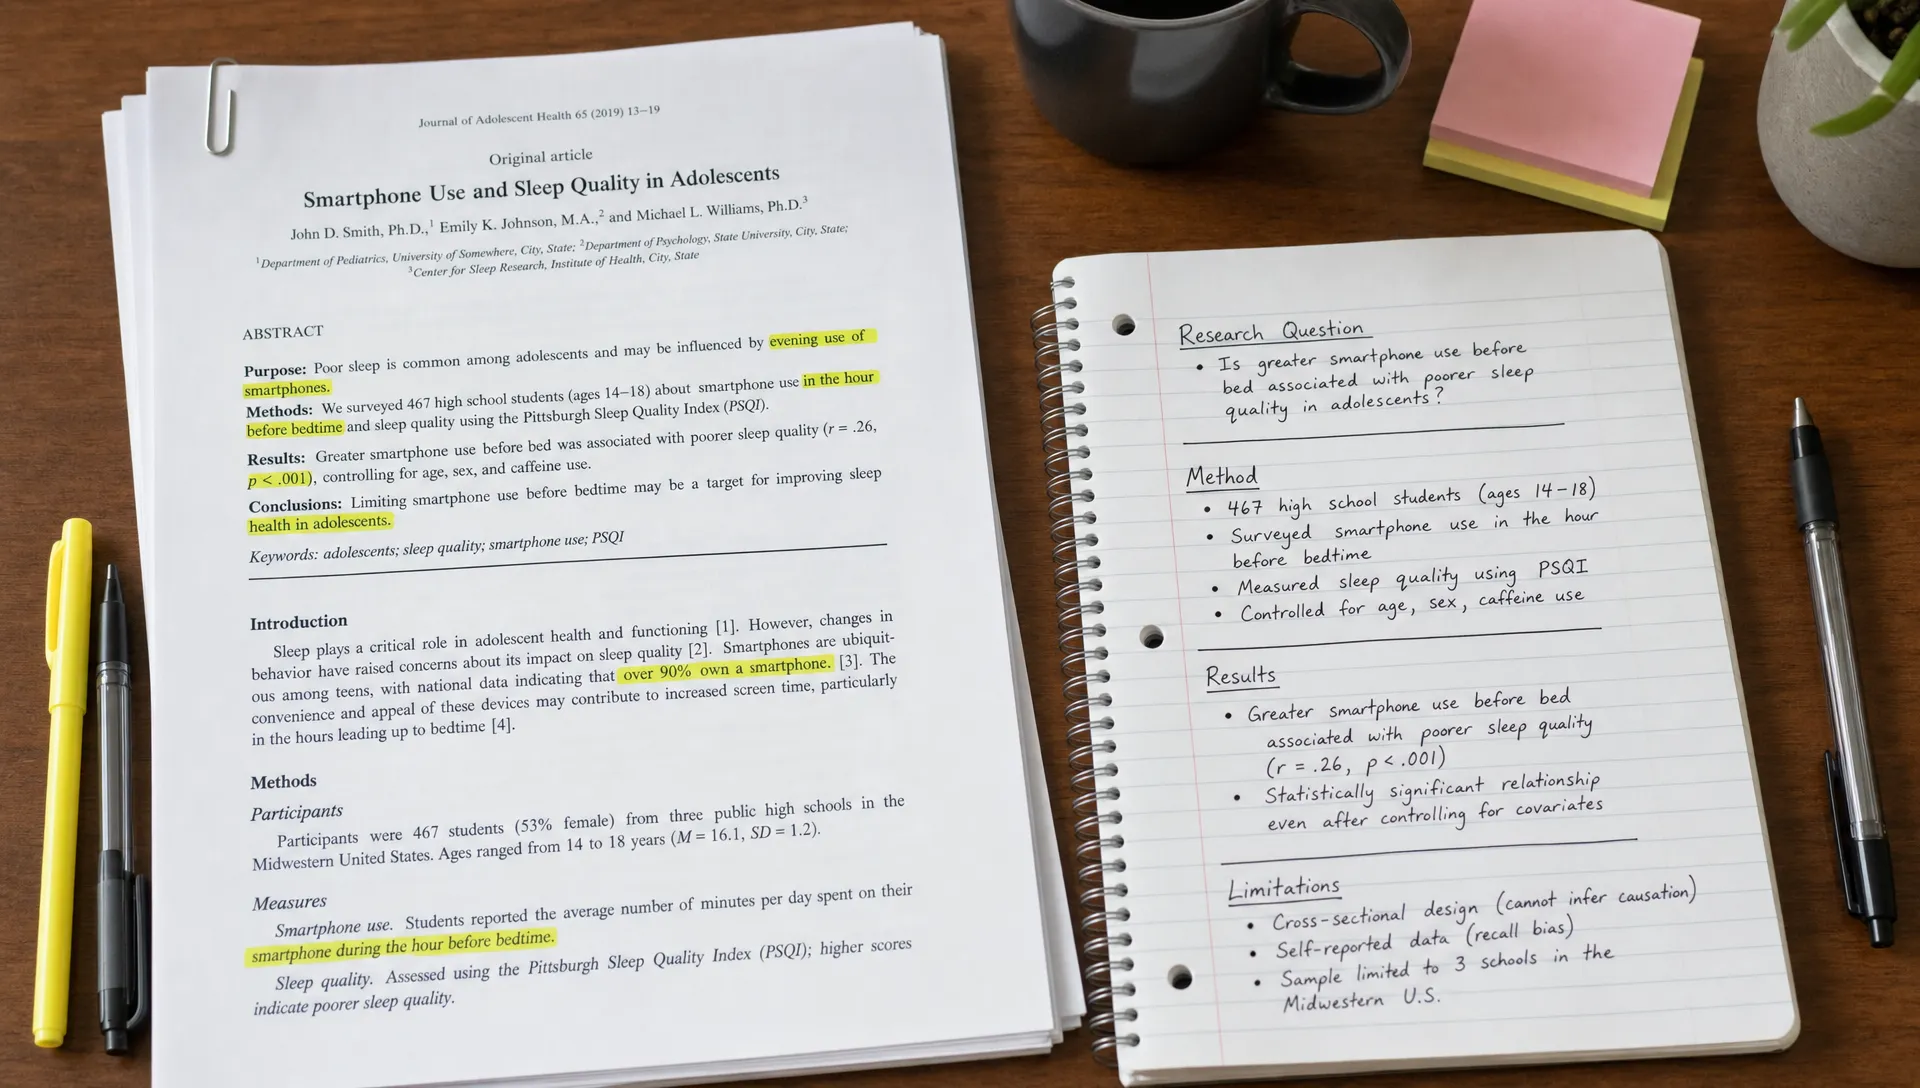 Journal of Adolescent Health 65 (2019) 13–19
Original article
Smartphone Use and Sleep Quality in Adolescents
John D. Smith, Ph.D.,¹ Emily K. Johnson, M.A.,² and Michael L. Williams, Ph.D.³
¹Department of Pediatrics, University of Somewhere, City, State; ²Department of Psychology, State University, City, State;
³Center for Sleep Research, Institute of Health, City, State
ABSTRACT
Purpose: Poor sleep is common among adolescents and may be influenced by evening use of
smartphones.
Methods: We surveyed 467 high school students (ages 14–18) about smartphone use in the hour
before bedtime and sleep quality using the Pittsburgh Sleep Quality Index (PSQI).
Results: Greater smartphone use before bed was associated with poorer sleep quality (r = .26,
p < .001), controlling for age, sex, and caffeine use.
Conclusions: Limiting smartphone use before bedtime may be a target for improving sleep
health in adolescents.
Keywords: adolescents; sleep quality; smartphone use; PSQI
Introduction
Sleep plays a critical role in adolescent health and functioning [1]. However, changes in
behavior have raised concerns about its impact on sleep quality [2]. Smartphones are ubiquit-
ous among teens, with national data indicating that over 90% own a smartphone. [3]. The
convenience and appeal of these devices may contribute to increased screen time, particularly
in the hours leading up to bedtime [4].
Methods
Participants
Participants were 467 students (53% female) from three public high schools in the
Midwestern United States. Ages ranged from 14 to 18 years (M = 16.1, SD = 1.2).
Measures
Smartphone use. Students reported the average number of minutes per day spent on their
smartphone during the hour before bedtime.
Sleep quality. Assessed using the Pittsburgh Sleep Quality Index (PSQI); higher scores
indicate poorer sleep quality.
Research Question
• Is greater smartphone use before
bed associated with poorer sleep
quality in adolescents?
Method
• 467 high school students (ages 14–18)
• Surveyed smartphone use in the hour
before bedtime
• Measured sleep quality using PSQI
• Controlled for age, sex, caffeine use
Results
• Greater smartphone use before bed
associated with poorer sleep quality
(r = .26, p < .001)
• Statistically significant relationship
even after controlling for covariates
Limitations
• Cross-sectional design (cannot infer causation)
• Self-reported data (recall bias)
• Sample limited to 3 schools in the
Midwestern U.S.